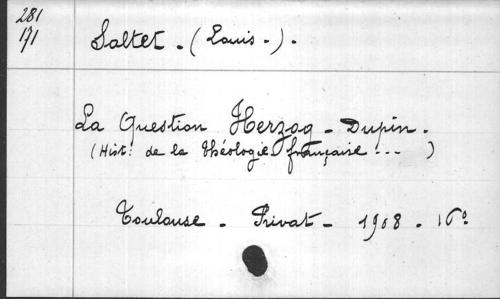 281
171
Saltet - (Louis -) -
La Question Herzog - Dupin -
(Hist: de la théologie française --- )
Toulouse - Privat - 1908 - 16º